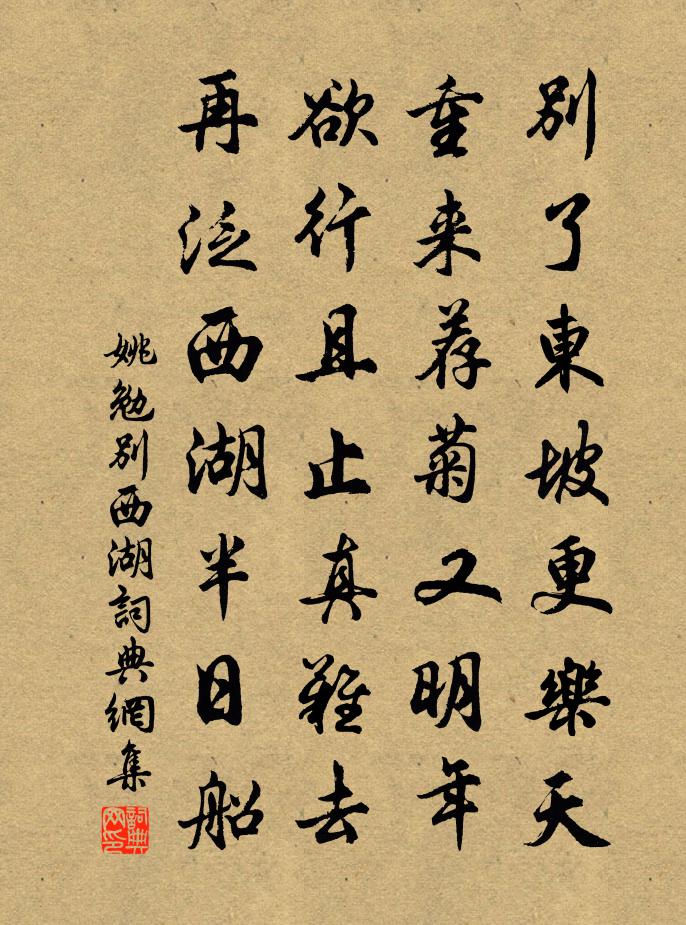 別了東坡更樂天
重来荐菊又明年
欲行且止真難去
再泛西湖半日船
姚勉別西湖詞典網集
詞典网印